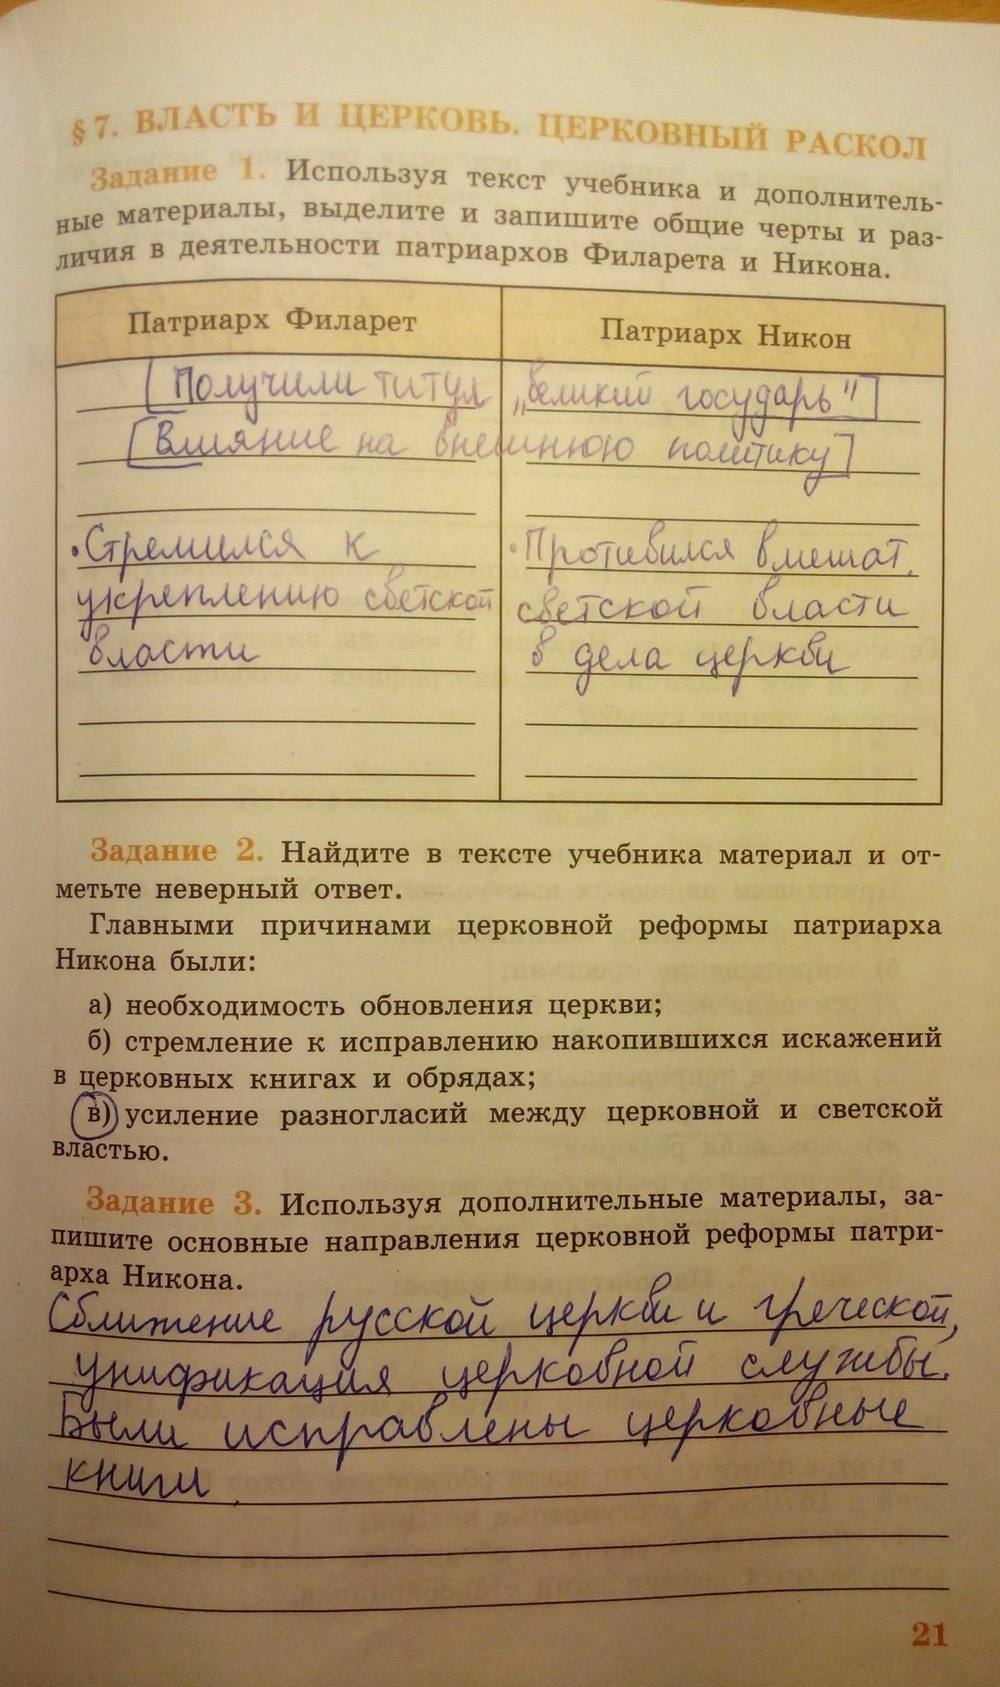 § 7. ВЛАСТЬ И ЦЕРКОВЬ. ЦЕРКОВНЫЙ РАСКОЛ
Задание 1. Используя текст учебника и дополнитель-
ные материалы, выделите и запишите общие черты и раз-
личия в деятельности патриархов Филарета и Никона.
Патриарх Филарет
Патриарх Никон
[Получили титул „великий государь"]
[Влияние на внешнюю политику]
• Стремился к
укреплению светской
власти
• Противился вмешат.
светской власти
в дела церкви
Задание 2. Найдите в тексте учебника материал и от-
метьте неверный ответ.
Главными причинами церковной реформы патриарха
Никона были:
а) необходимость обновления церкви;
б) стремление к исправлению накопившихся искажений
в церковных книгах и обрядах;
в) усиление разногласий между церковной и светской
властью.
Задание 3. Используя дополнительные материалы, за-
пишите основные направления церковной реформы патри-
арха Никона.
Сближение русской церкви и греческой,
унификация церковной службы.
Были исправлены церковные
книги.
21